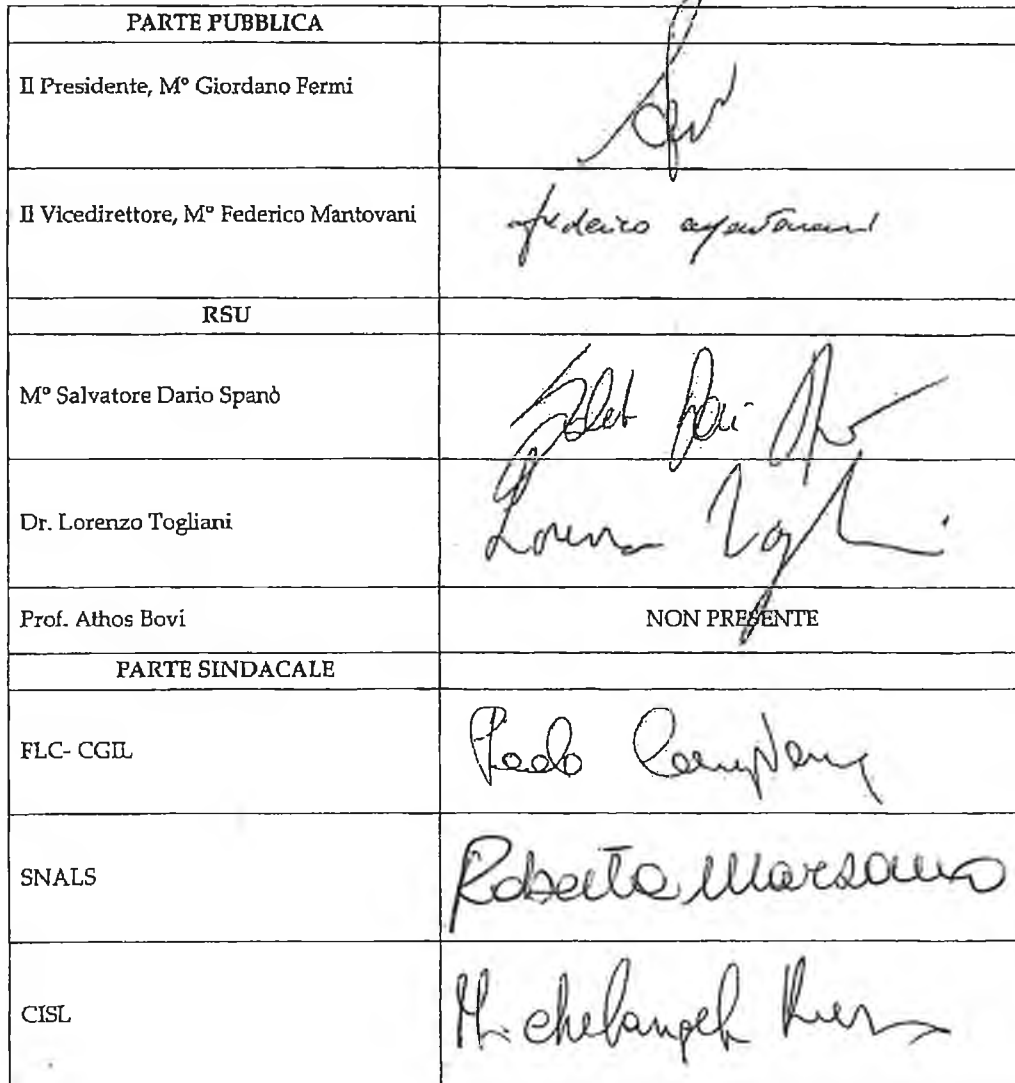 PARTE PUBBLICA
Il Presidente, M° Giordano Fermi
Il Vicedirettore, M° Federico Mantovani
federico
RSU
M° Salvatore Dario Spanò
Dr. Lorenzo Togliani
Prof. Athos Bovi NON PRESENTE
PARTE SINDACALE
FLC- CGIL
SNALS Roberta Marsano
CISL Michelangelo